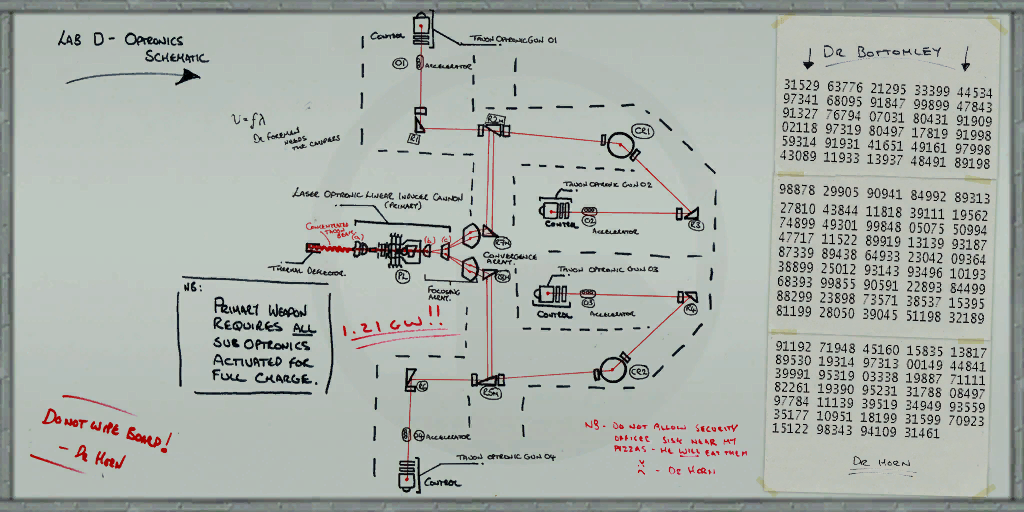 LAB D - OPTRONICS
SCHEMATIC
V=fλ
NEEDS
CONTROL
TAUON OPTRONIC GUN 01
01
ACCELERATOR
R1
R2M
CR1
TAUON OPTRONIC GUN 02
CONTROL
02
ACCELERATOR
R3
LASER OPTRONIC LINEAR INDUCER CANNON
(PRIMARY)
CONCENTRATED
TAUON
BEAM
(a)
(b)
(c)
THERMAL DEFLECTOR.
PL
FOCUSING
ARENT.
CONVERGENCE
ARENT.
TAUON OPTRONIC GUN 03
CONTROL
03
ACCELERATOR
R4
NB:
PRIMARY WEAPON
REQUIRES ALL
SUB OPTRONICS
ACTIVATED FOR
FULL CHARGE.
1.21 GW!!
R6
R5M
CR2
04
ACCELERATOR
TAUON OPTRONIC GUN 04
CONTROL
DO NOT WIPE BOARD!
- DR HORN
NB - DO NOT ALLOW SECURITY
OFFICER SISK NEAR MY
PIZZAS - HE WILL EAT THEM
- DR HORN
DR BOTTOMLEY
31529 63776 21295 33399 44534
97341 68095 91847 99899 47843
91327 76794 07031 80431 91909
02118 97319 80497 17819 91998
59314 91931 41651 49161 97998
43089 11933 13937 48491 89198
98878 29905 90941 84992 89313
27810 43844 11818 39111 19562
74899 49301 99848 05075 50994
47717 11522 89919 13139 93187
87339 89438 64933 23042 09364
38899 25012 93143 93496 10193
68393 99855 90591 22893 84499
88299 23898 73571 38537 15395
81199 28050 39045 51198 32189
91192 71948 45160 15835 13817
89530 19314 97313 00149 44841
39991 95319 03338 19887 71111
82261 19390 95231 31788 08497
97784 11139 39519 34949 93559
35177 10951 18199 31599 70923
15122 98343 94109 31461
DR HORN